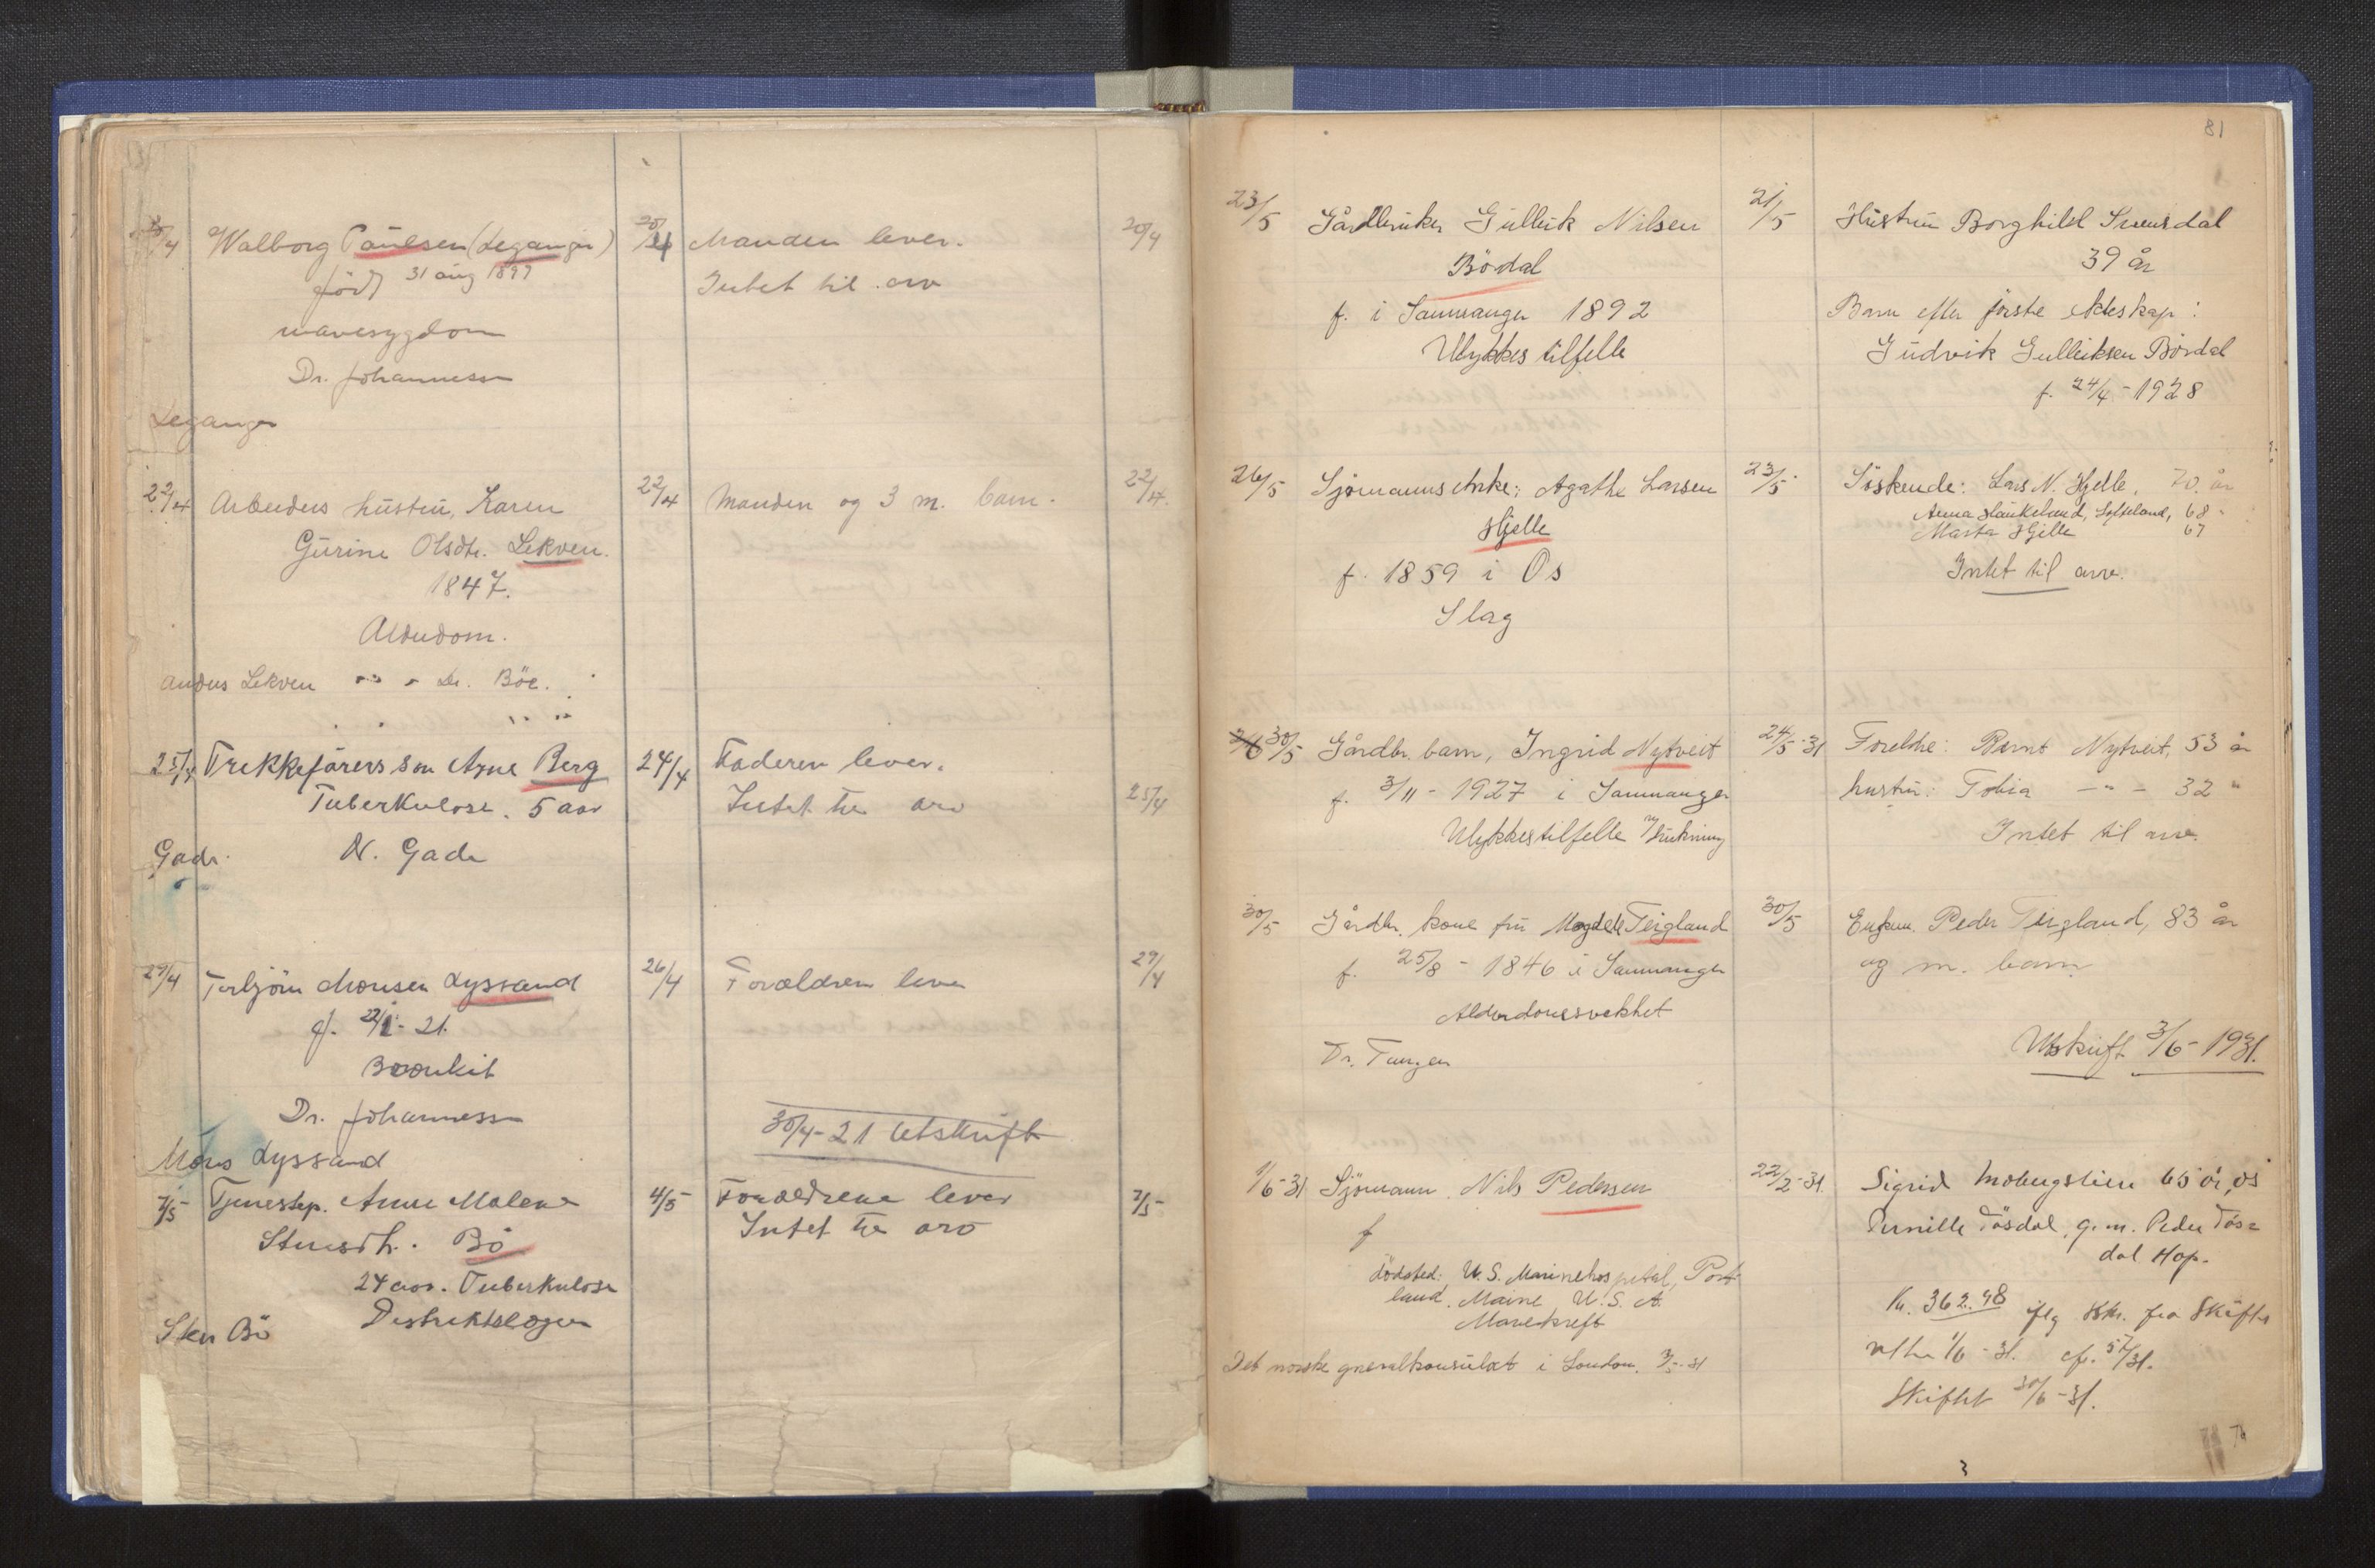 20/4 Walborg Paulsen (Leganger) 20/4 Manden lever. 20/4
född 31 aug 1897 Intet til arv
mavesygdom
Dr. Johannessen
Leganger
22/4 Arbeiders hustru, Karen 22/4 Manden og 3 m. barn. 22/4
Gurine Olsdtr. Lekven.
1847.
Alderdom.
Anders Lekven Dr. Böe.
25/4 Trekkförers son Arne Berg 24/4 Faderen lever.
Tuberkulose. 5 aar Intet til arv 25/4
Gade. N. Gade
29/4 Torbjörn Monsen Lyssand 26/4 Forældren lever 29/4
f. 21.
Bronkit
Dr. Johannessen
30/4-21 Utskrift
Mons Lyssand
7/5 Tjenestep. Anne Malene 4/5 Forældrene lever 7/5
Stensdtr. Bö Intet til arv
24 aar. Tuberkulose
Sten Bö Distriktslægen
81
23/5 Gårdbruker Gulleik Nilsen 21/5 Hustru Borghild
Bördal 39 år
f. i Samnanger 1892 Barn efter förste ekteskap:
Ulykkestilfelle Gudvik Gulleiksen Bördal
f. 24/4-1928
26/5 Sjömanns enke: Agathe Larsen 23/5 Söskende: Lars N. Hjelle, 70 år
Hjelle Anna Haukeland, Söfteland, 68 "
Marta Hjelle 67
f. 1859 i Os Intet til arv.
Slag
30/5 Gårdbr. barn, Ingrid Nytveit 24/5-31 Foreldre: Bernt Nytveit, 53 år
f. 3/11-1927 i Samnanger hustru: Tobia - " - 32 "
Ulykkestilfelle v/ drukning Intet til arv.
30/5 Gårdbr. kone fru Magdele Teigland 30/5 Enkem. Peder Teigland, 83 år
f. 25/8-1846 i Samnanger og m. barn
Alderdomssvekket
Dr. Tangen Utskrift 3/6-1931.
1/6-31 Sjömann Nils Pedersen 22/2-31. Sigrid 65 år, Os
f Pernille Tösdal, g. m. Peder Tös=
dal Hop.
dödsted: U.S. Marinehospital, Port=
land, Maine U.S.A. Kr. 362.48 iflg skr. fra Skifte
Mavekreft
retten 1/6-31. cfr. 57/31.
Det norske generalkonsulat i London. 31
Skiftet 30/6-31.
3